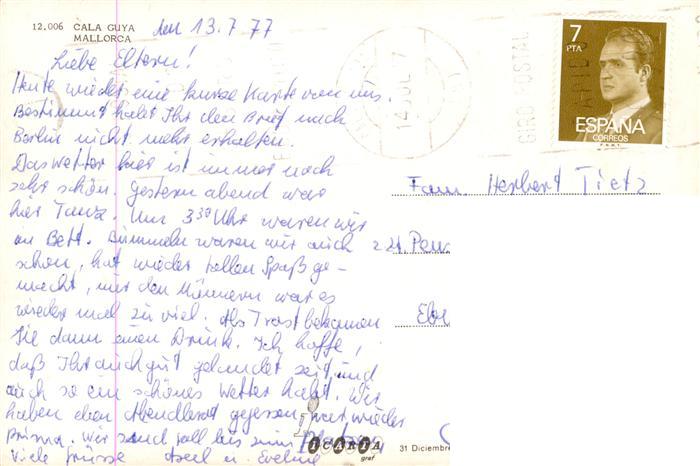 12.006 CALA GUYA
MALLORCA
den 13.7.77
Liebe Eltern!
Heute wieder eine kurze Karte von uns.
Bestimmt habt Ihr den Brief nach
Berlin nicht mehr erhalten.
Das Wetter hier ist immer noch
sehr schön. Gestern abend war
hier Tanz. Um 3 30 Uhr waren wir
im Bett. Bummeln waren wir auch
schon, hat wieder tollen Spaß ge-
macht, nur den Männern war es
wieder mal zu viel. Als Trost bekamen
Sie dann einen Drink. Ich hoffe,
daß Ihr auch gut gelandet seit, und
auch so ein schönes Wetter habt. Wir
haben eben Abendbrot gegessen, war wieder
prima. Wir sind voll bis zum
Viele Grüsse Axel u. Eveline
7
PTA
ESPAÑA
CORREOS
F.N.M.T.
GIRO POSTAL
14 JUL
Fam. Herbert Tietz
ICARIA
graf
31 Diciembre